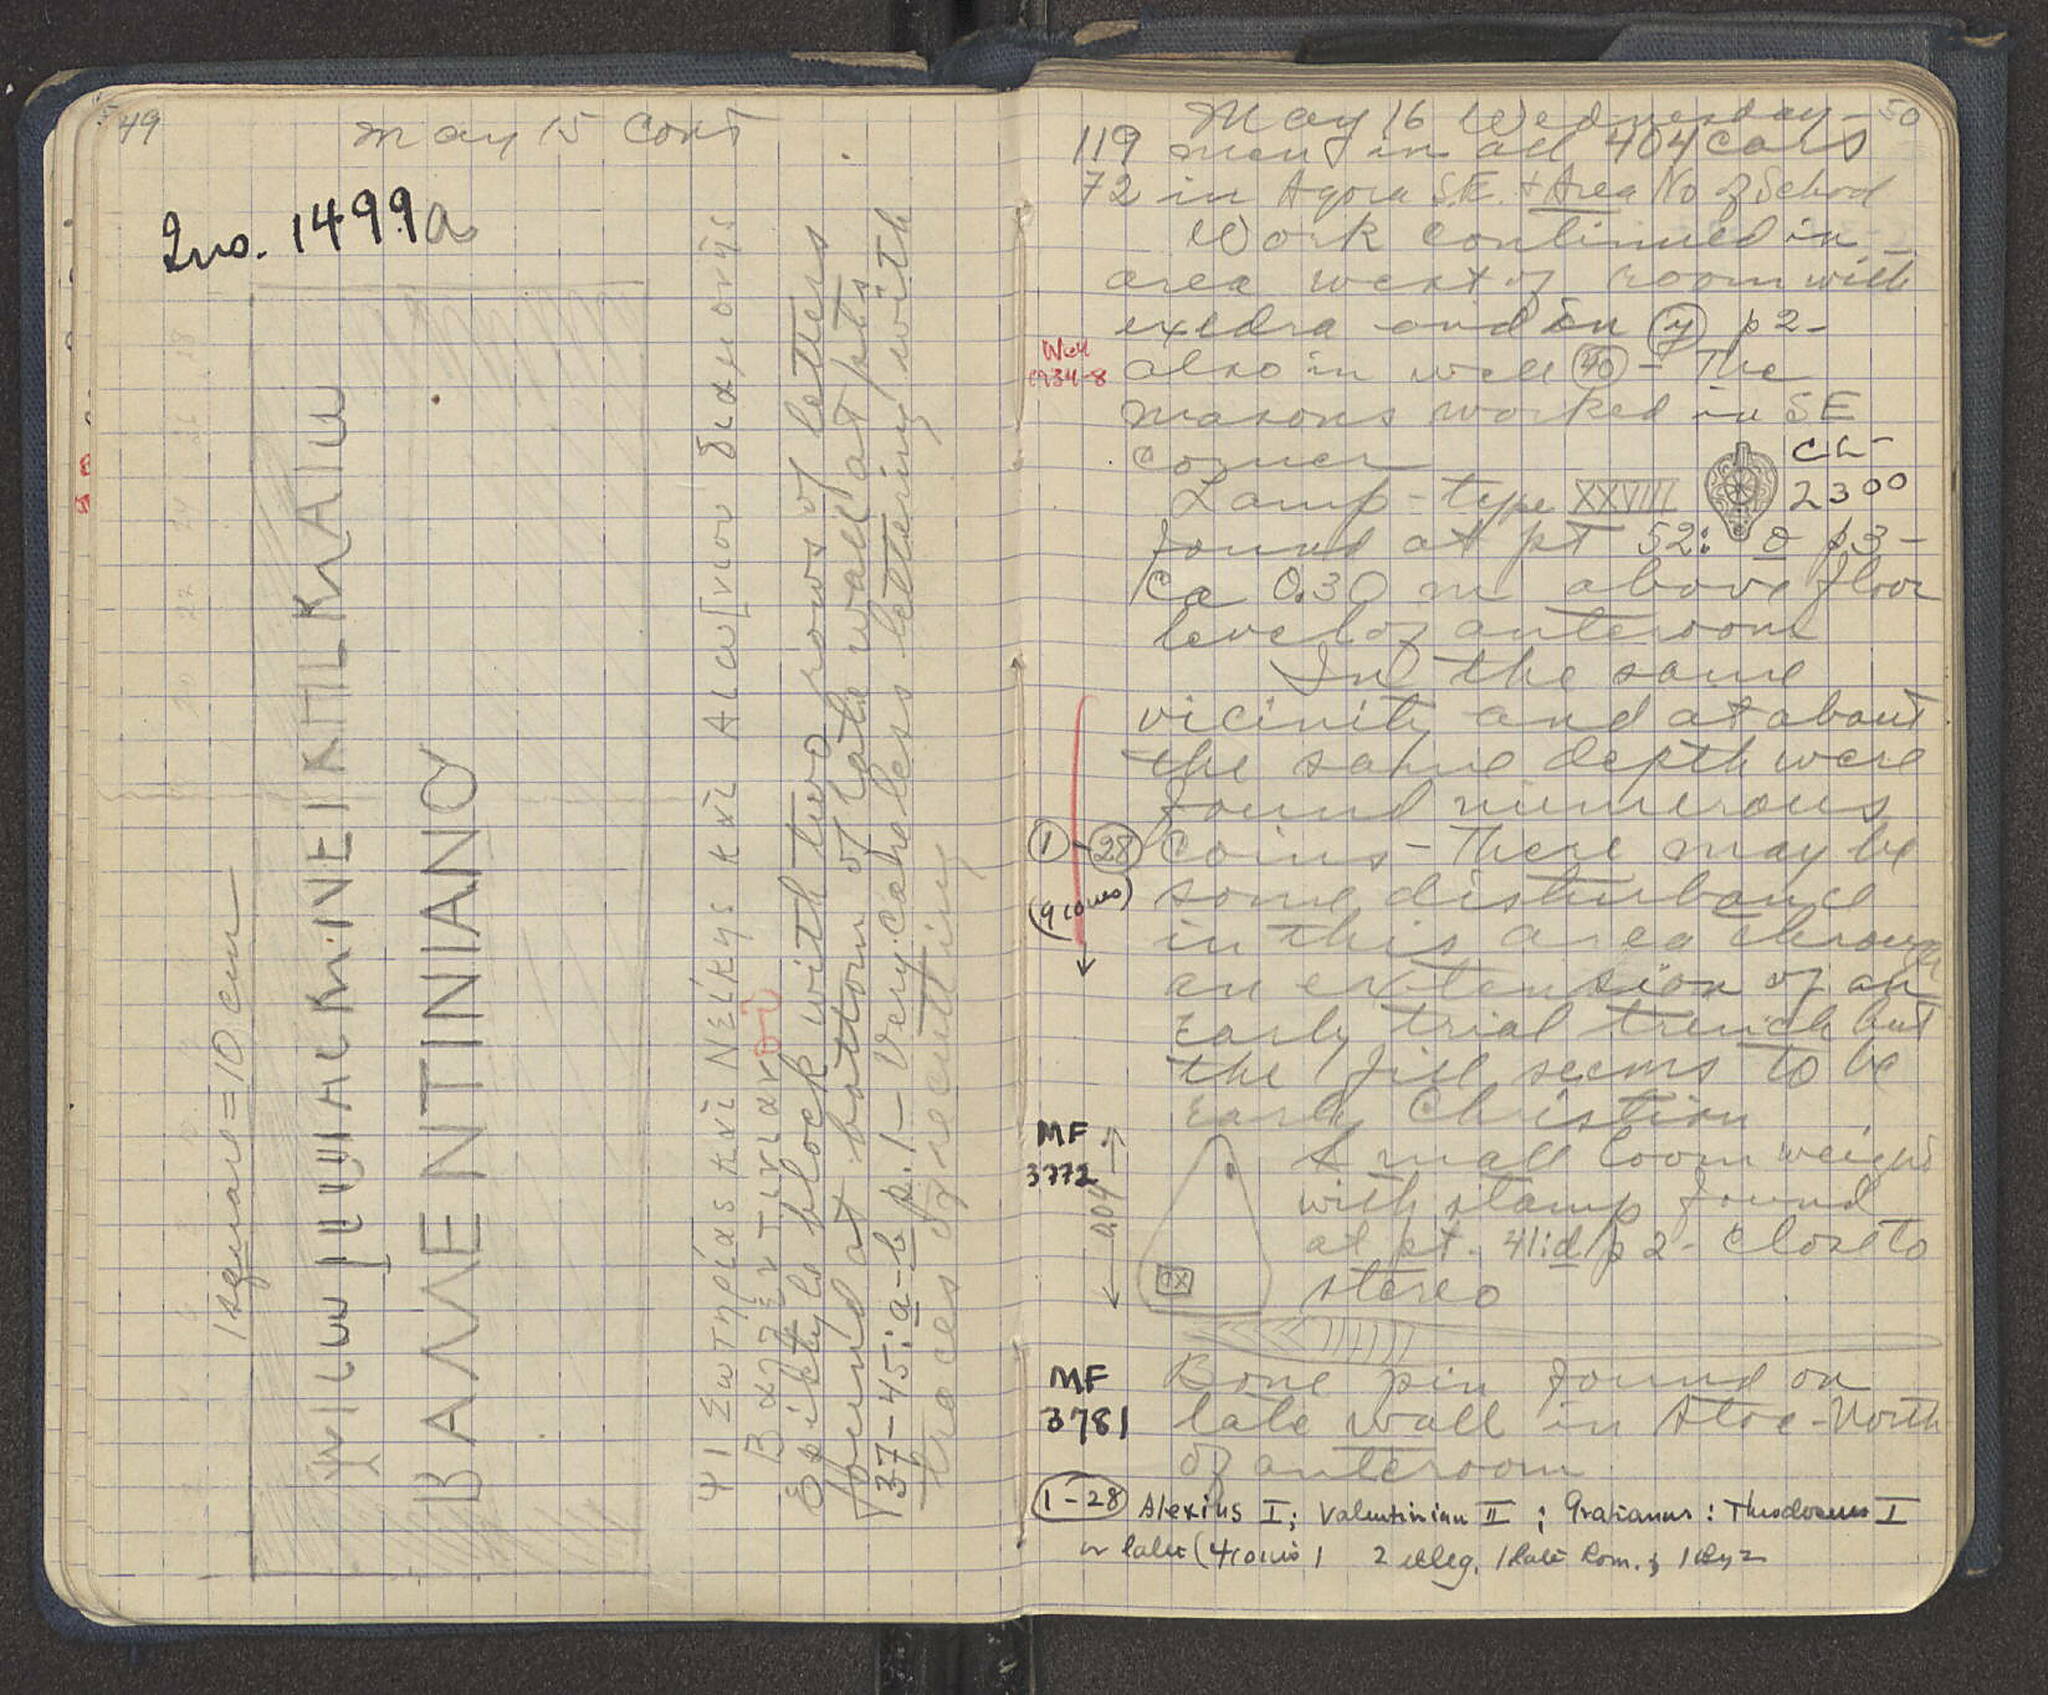 49
May 15 Cont
Ino. 1499a
1 square = 10 cm
ΒΑΛΕΝΤΙΝΙΑΝΟ
ΨΙ Σωτηρίας καὶ Νείκης καὶ Αἰω[νίου διαμονῆς
Βαλεντινιανοῦ
Epistyle block with two rows of letters
found at bottom of late wall at pts
37-45:a-b p.1 - Very careless lettering with
traces of recutting
May 16 Wednesday - 50
119 men in all 404 cars
72 in Agora S.E. + Area No of School
Work continued in
area west of room with
exedra and in y p2-
Well
1934-8
also in well 40 - The
masons worked in SE
corner
CL-
2300
Lamp - type XXVIII
found at pt 52: o p3-
Ca 0.30 m above floor
level of anteroom
In the same
vicinity and at about
the same depth were
found numerous
1 - 28
(9 coins)
Coins - There may be
some disturbance
in this area through
an extension of an
early trial trench but
the fill seems to be
Early Christian
MF
3772
0.04
Small loom weight
with stamp found
at pt. 41:d p2 - close to
stereo
MF
3781
Bone pin found on
late wall in Stoa - North
of anteroom
1-28 Alexius I; Valentinian II; Gratianus: Theodosius I
or later (4 coins) 2 illeg. 1 late Rom. & 1 Byz